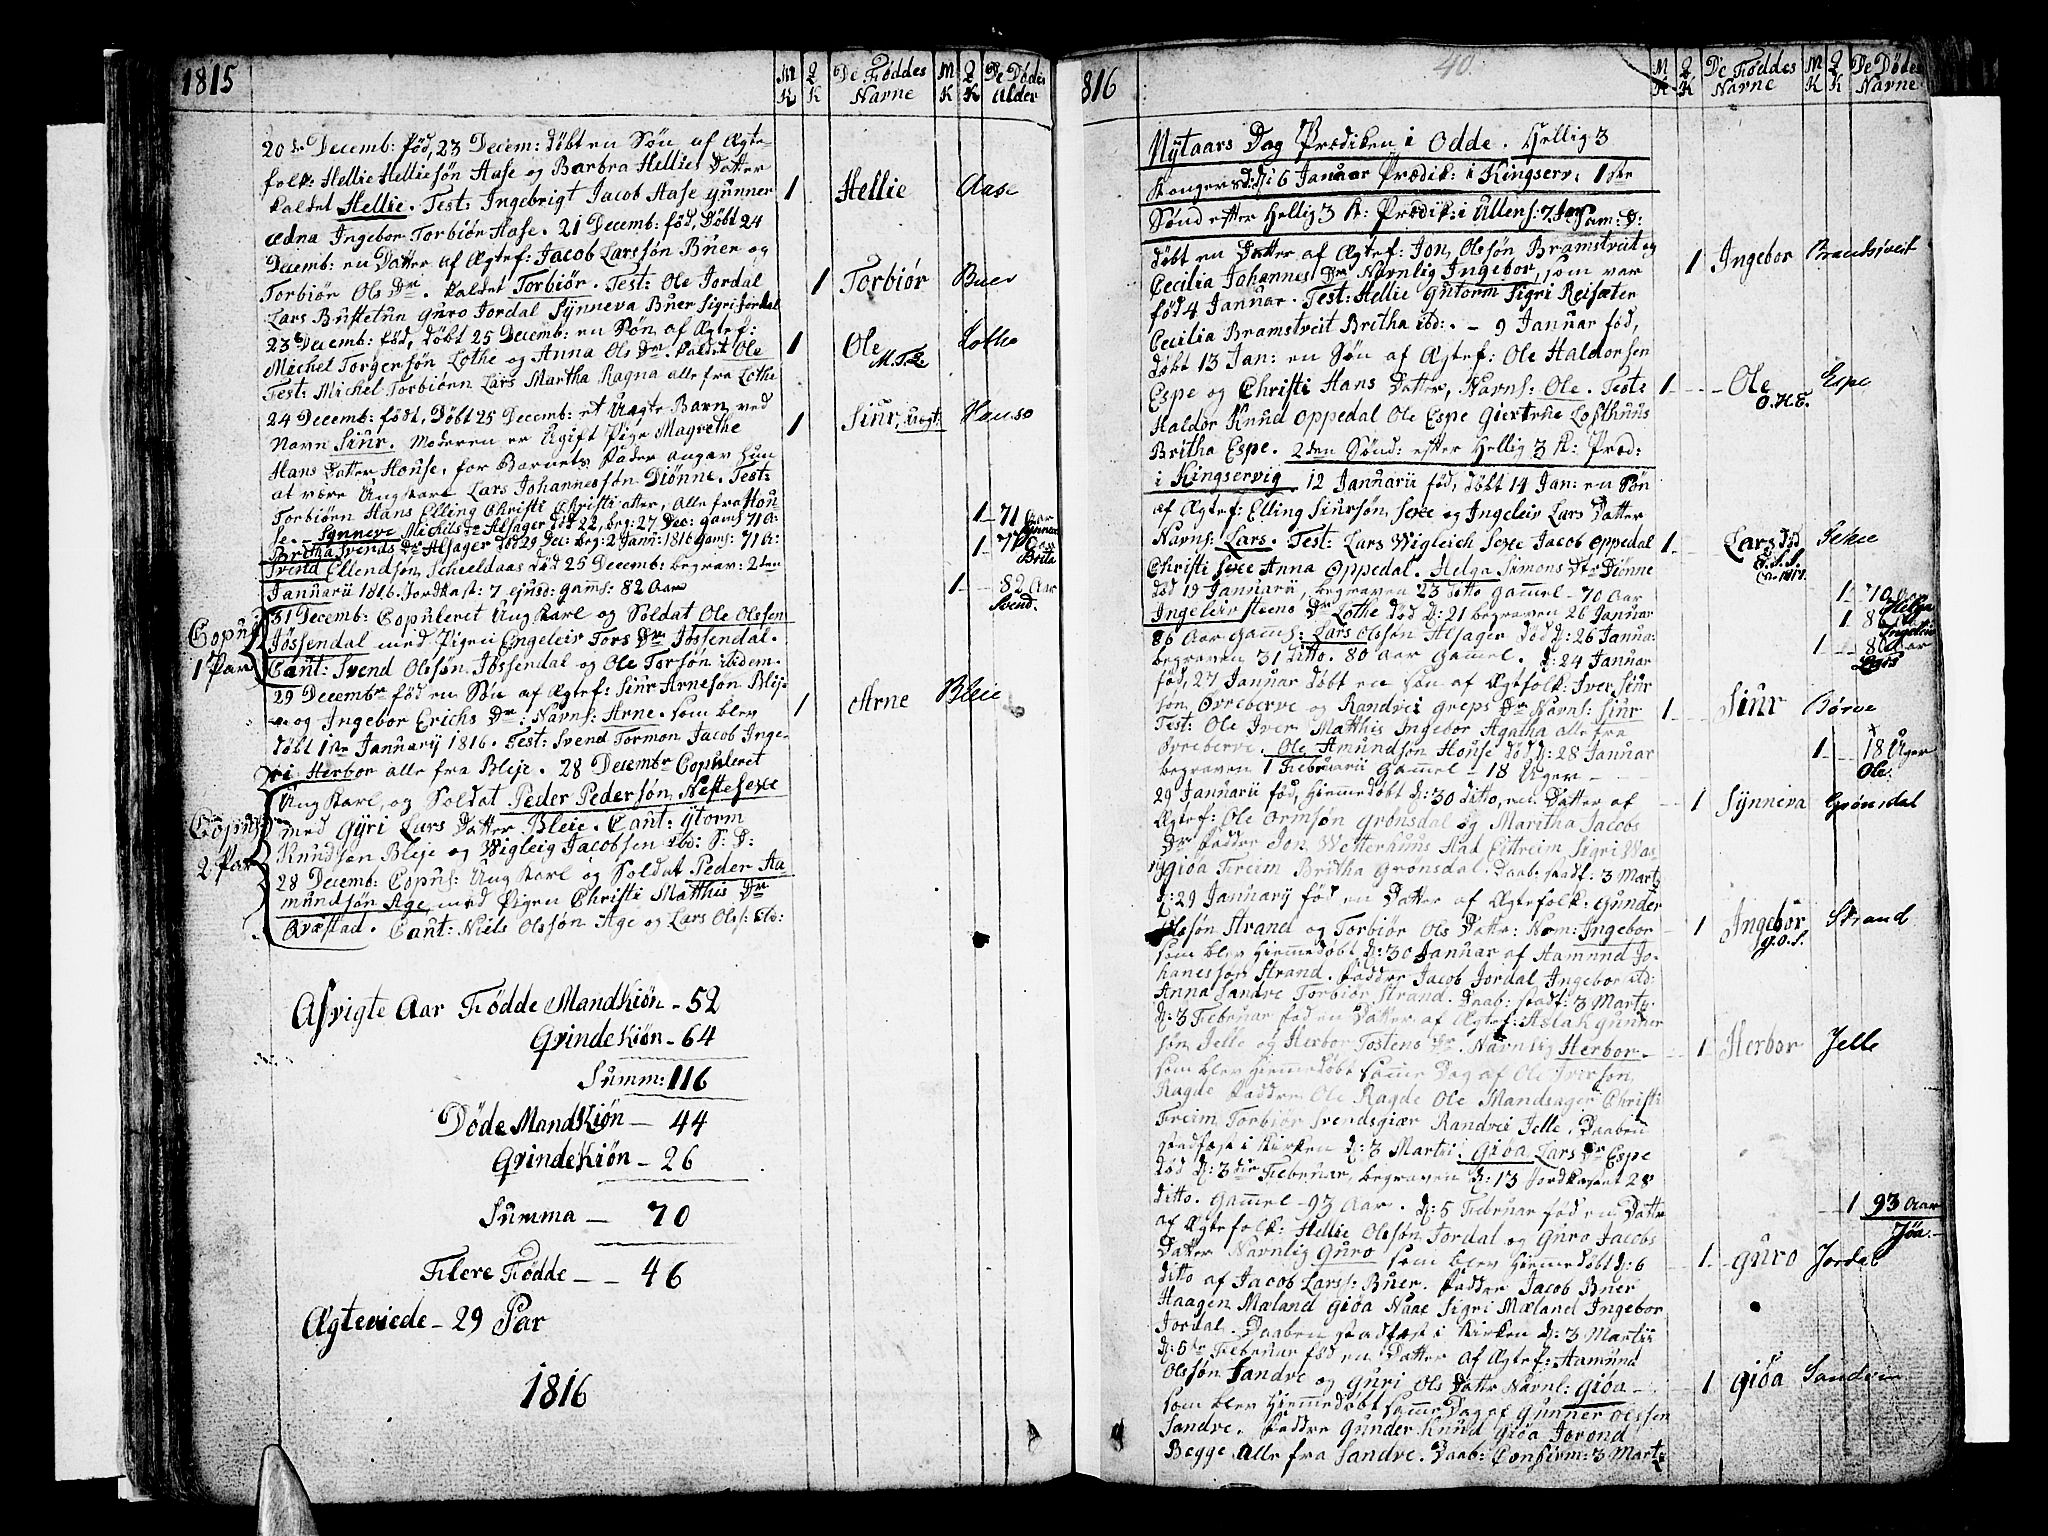 1815
M K
Q K
De Föddes Navne
M K
Q K
De Dödes Alder
20de Decemb: föd, 23 Decem: döbt en Sön af Ægte-
folk: Hellie Helliesön Aase og Barbra Hellies Datter
kaldet Hellie. Test: Ingebrigt Jacob Aase Gunner
Ædna Ingebor Torbiör Aase. 21 Decemb: föd, Döbt 24
Decemb: en Datter af Ægtef: Jacob Larssön Buer og
Torbiör Ols Dr. kaldet Torbiör. Test: Ole Jordal
Lars Bustetun Guro Jordal Synneva Buer Sigri Jordal
23de Decemb: föd, döbt 25 Decemb: en Sön af Ægtef:
Michel Torgersön Lothe og Anna Ols Dr. kaldet Ole
Test: Michel Torbiörn Lars Martha Ragna alle fra Lothe
24 Decemb: födt, Döbt 25 Decemb: et Uægte Barn ved
Navn Siur. Moderen er Ugift Pige Magrethe
Hans Datter House, for Barnets Fader angav hun
at være Ungkarl Lars Johannessön Diönne. Test:
Torbiörn Hans Elling Christi Christi atter, Alle fra Hou-
se. - Synneve Michils Dr Alsager död 22, beg: 27 Dec: gams 71 A:
Britha Svends Dr Alsager död 29 Dec: beg: 2 Janu: 1816 gams: 71 A:
Svend Ellendsön, Scheeldaas död 25 Decemb: begrav: 2den
Januarii 1816. Jordkast: 7 ejusd: Gamls: 82 Aar
31 Decemb: Copuleret Ungkarl og Soldat Ole Olssen
Jössendal med Pigen Engeleiv Tors Dr Jössendal.
Caut: Svend Olssön Jössendal og Ole Torssön ibidem.
29 Decembr föd en Sön af Ægtef: Siur Arnesön Blej-
e og Ingebor Erichs Dr: Navns: Arne. som blev
döbt 1ste Januarij 1816. Test: Svend Tormon Jacob Inge-
ri Herbor alle fra Bleje. 28 Decembr Copuleret
Ung Karl, og Soldat Peder Pedersön, Nestesexe
med Gyri Lars Datter Bleie. Caut: Gtorm
Knudsen Bleje og Wigleig Jacobsen ibd: S: D:
28 Decemb: Copuls: Ung Karl og Soldat Peder Aa
mundsön Age, med Pigen Christi Matthis Dr
Qvæstad. Caut: Niels Olssön Age og Lars Ols: ibd:
Copul
1 Par
Copul
2 Par
1 Hellie Aase
1 Torbiör Buer
1 Ole Lothe
M.T.L.
1 Siur, uægt: House
1 - 71 Aar
Synneve
1 - 71 Aar
Brita
1 - 82 Aar
Svend.
1 Arne Bleie
Afvigte Aar Födde Mandkiön - 52
Qvindekiön - 64
Summ: 116
Döde Mandkiön - 44
Qvindekiön - 26
Summa - 70
Flere Födde - - 46
Ægteviede - 29 Par
1816
816
40.
M K
Q K
De Föddes Navne
M K
Q K
De Dödes Navne
Nytaars Dag Prædiken i Odde. Hellig 3
Kongers d: 6 Januar Prædik: i Kingserv: 1ste
Sönd efter Hellig 3 K: Prædik: i Ullens: 7 Jan Sam: D:
döbt en Datter af Ægtef: Jon, Olssön Bramstveit og
Cecilia Johannes Dr Navnlig Ingebor, som var
föd 4 Januar. Test: Hellie Gutorm Sigri Reisæter
Cecilia Bramstveit Britha ibd: - 9 Januar föd,
döbt 13 Jan: en Sön af Ægtef: Ole Haldorsen
Espe og Christi Hans Datter, Navns: Ole. Test:
Haldor Knud Oppedal Ole Espe Giertrue Lofthuus
Britha Espe. 2den Sönd: efter Hellig 3 K: Præd:
i Kingservig. 12 Januarii föd, döbt 14 Jan: en Sön
af Ægtef: Elling Siursön, Sexe og Ingeleiv Lars Datter
Navns: Lars. Test: Lars Wigleich Sexe Jacob Oppedal
Christi Sexe Anna Oppedal. Helga Simons Dtr Diönne
död 19 Januarii, begraven 23 ditto gammel - 70 Aar
Ingeleiv Steens Dr Lothe död d: 21 begraven 26 Januar
86 Aar gamls: Lars Olssön Alsager död d: 26 Janua:
begraven 31 ditto. 80 aar Gamel. d: 24 Januar
föd, 27 Januar döbt en sön af Ægtfolk: Iver Siur
sön, Övreberve og Randvei Greps Dr Navns: Siur
Test: Ole Iver Matthis Ingebor Agatha alle fra
Övreberve. Ole Amundsön House död d: 28 Januar
begraven 1 Februarii Gammel - 18 Uger -
29 Januarii föd, Hiemedöbt d: 30 ditto, en Datter af
Ægtef: Ole Ormsön Grönsdal og Maritha Jacobs
Dr Fadder Jon Wetterhuus Aad Eitreim Sigri Was-
Giöa Freim Britha Grönsdal. Daab: stadf: 3 Marty
d: 29 Januarij föd en Datter af Ægtefolk: Gunder
Olssön Strand og Torbiör Ols Datter: Navn: Ingebor
som blev Hiemedöbt d: 30 Januar af Aamund Jo-
hanessön Strand. Fadder Jacob Jordal Ingebor ibd:
Anna Sandve Torbiör Strand. Daab: stadf: 3 Marty.
d: 3 Februar föd en Datter af Ægtef: Aslak Gunner
sön Jelle og Herbor Tostens Dr. Navnlig Herbor.
som blev Hiemedöbt samme Dag af Ole Iversön
Ragde Faddre Ole Ragde Ole Mandsager Christi
Freim Torbiör Svendsgiær Randvei Jelle. Daaben
stadfæst i Kirken d: 3 Martii. Giöa Lars Dr Espe
död d: 3die Februar, begraven d: 13 Jordkastet 28
ditto. Gammel - 93 Aar. d: 5 Februar föd en Datter
af Ægtefolk: Hellie Olssön Jordal og Guro Jacobs
Datter Navnlig Guro som blev Hiemedöbt d: 6
ditto af Jacob Larss: Buer. Faddre Jacob Buer
Haagen Mæland Giöa Naae Sigri Mæland Ingebor
Jordal. Daaben stadfæst i Kirken d: 3 Martii
d: 5te Februar föd en Datter af Ægtef: Aamund
Olssön Sandve og Guri Ols Datter Navnl: Giöa -
som blev Hiemedöbt samme Dag af Gunner Olssen
Sandve. Faddre Gunder Knud Giöa Jorond
Begge alle fra Sandve. Daab: Confirm: 3 Marty
1 Ingebor Bramstveit
1 Ole Espe
O.H.E.
1 Lars död Sexe
E.S.S.
1 70 Aar
Helga
1 86
Ingeleiv
1 80 Aar
Lars
1 Siur Börve
1 18 Uger
Ole.
1 Synneva Grönsdal
1 Ingebör Strand
G.O.S.
1 Herbor Jelle
1 93 Aar
Jöa.
1 Guro Jordal
1 Giöa Sandven